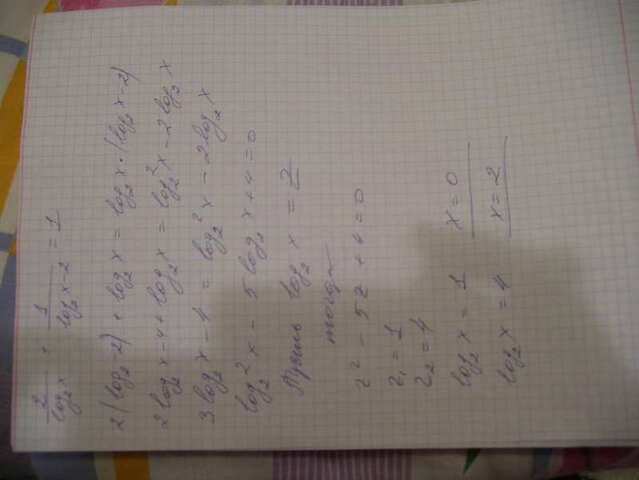 2/log₂x + 1/log₂x-2 = 1
2(log₂-2) + log₂x = log₂x·(log₂x-2)
2log₂x-4+log₂x = log₂²x-2log₂x
3log₂x-4 = log₂²x-2log₂x
log₂²x-5log₂x+4=0
Пусть log₂x = z
тогда
z²-5z+4=0
z₁=1
z₂=4
log₂x=1 x=0
log₂x=4 x=2